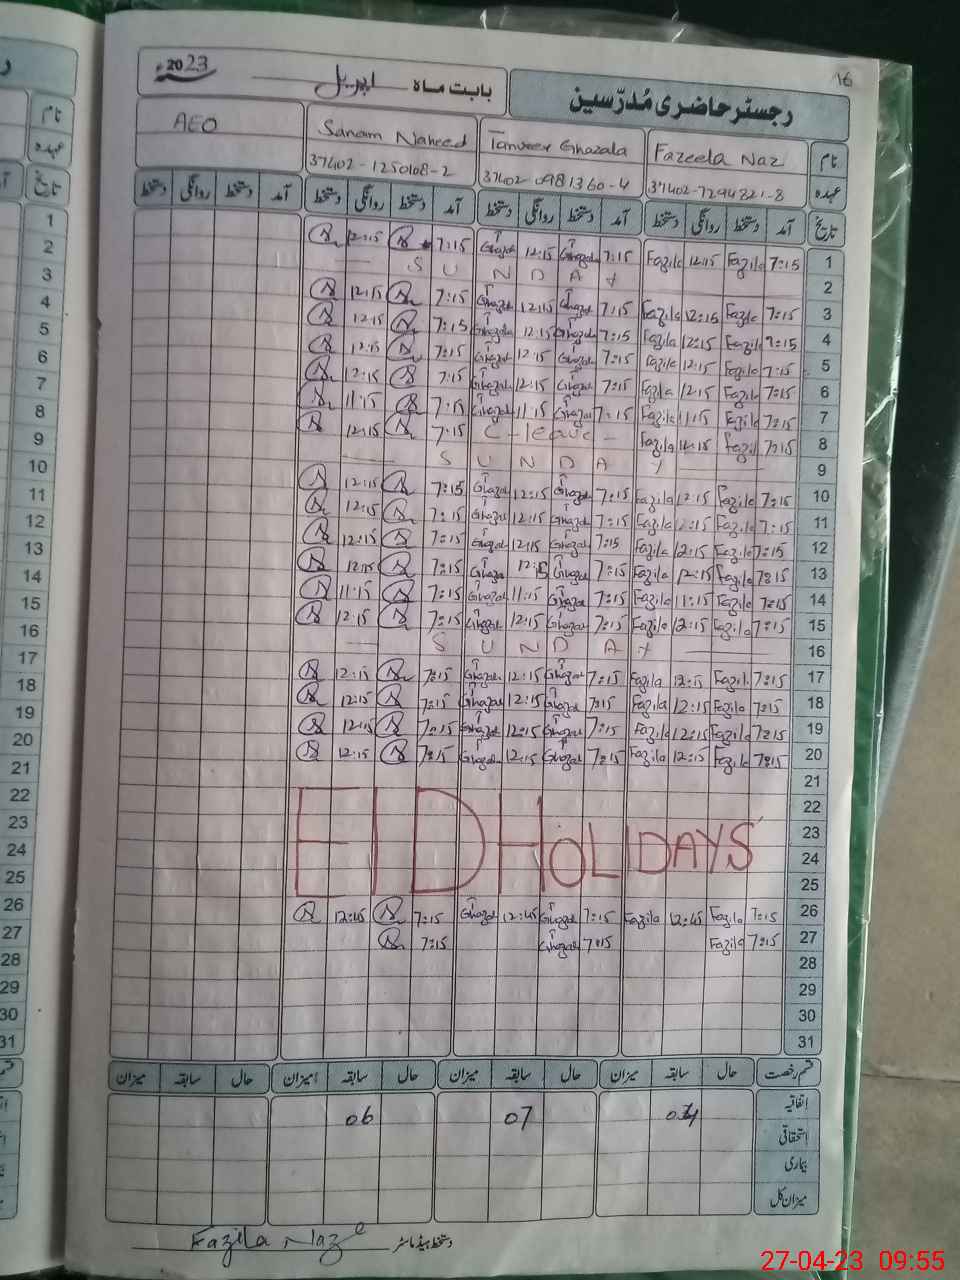 16
رجسٹر حاضری مُدرّسین
بابت ماہ اپریل 2023ء
نام Fazeela Naz Tanveer Ghazala Sanam Naheed AEO
عہدہ 37402-7294821-8 37402-0981360-4 37402-1250108-2
تاریخ آمد دستخط روانگی دستخط آمد دستخط روانگی دستخط آمد دستخط روانگی دستخط آمد دستخط روانگی دستخط
1 7:15 Fazila 12:15 Fazila 7:15 Ghazal 12:15 Ghazal 7:15 12:15
2 S U N D A Y
3 7:15 Fazila 12:15 Fazila 7:15 Ghazal 12:15 Ghazal 7:15 12:15
4 7:15 Fazila 12:15 Fazila 7:15 Ghazal 12:15 Ghazala 7:15 12:15
5 7:15 Fazila 12:15 Fazila 7:15 Ghazal 12:15 Ghazal 7:15 12:15
6 7:15 Fazila 12:15 Fazila 7:15 Ghazal 12:15 Ghazal 7:15 12:15
7 7:15 Fazila 11:15 Fazila 7:15 Ghazal 11:15 Ghazal 7:15 11:15
8 7:15 Fazil 12:15 Fazila C-leave- 7:15 12:15
9 S U N D A Y
10 7:15 Fazila 12:15 Fazila 7:15 Ghazal 12:15 Ghazal 7:15 12:15
11 7:15 Fazila 12:15 Fazila 7:15 Ghazal 12:15 Ghazal 7:15 12:15
12 7:15 Fazila 12:15 Fazila 7:15 Ghazal 12:15 Ghazal 7:15 12:15
13 7:15 Fazila 12:15 Fazila 7:15 Ghazal 12:15 Ghazal 7:15 12:15
14 7:15 Fazila 11:15 Fazila 7:15 Ghazal 11:15 Ghazal 7:15 11:15
15 7:15 Fazila 12:15 Fazila 7:15 Ghazal 12:15 Ghazal 7:15 12:15
16 S U N D A Y
17 7:15 Fazila 12:15 Fazila 7:15 Ghazal 12:15 Ghazal 7:15 12:15
18 7:15 Fazila 12:15 Fazila 7:15 Ghazal 12:15 Ghazal 7:15 12:15
19 7:15 Fazila 12:15 Fazila 7:15 Ghazal 12:15 Ghazal 7:15 12:15
20 7:15 Fazila 12:15 Fazila 7:15 Ghazal 12:15 Ghazal 7:15 12:15
21
22
23 EID HOLIDAYS
24
25
26 7:15 Fazila 12:45 Fazila 7:15 Ghazal 12:45 Ghazal 7:15 12:45
27 7:15 Fazila 7:15 Ghazal 7:15
28
29
30
31
قسم رخصت حال سابقہ میزان حال سابقہ میزان حال سابقہ میزان حال سابقہ میزان
اتفاقیہ 07 06
استحقاقی
بیماری
میزان کل
دستخط ہیڈ ماسٹر Fazila Naz
نام
عہدہ
تاریخ
1
2
3
4
5
6
7
8
9
10
11
12
13
14
15
16
17
18
19
20
21
22
23
24
25
26
27
28
29
30
31
27-04-23 09:55